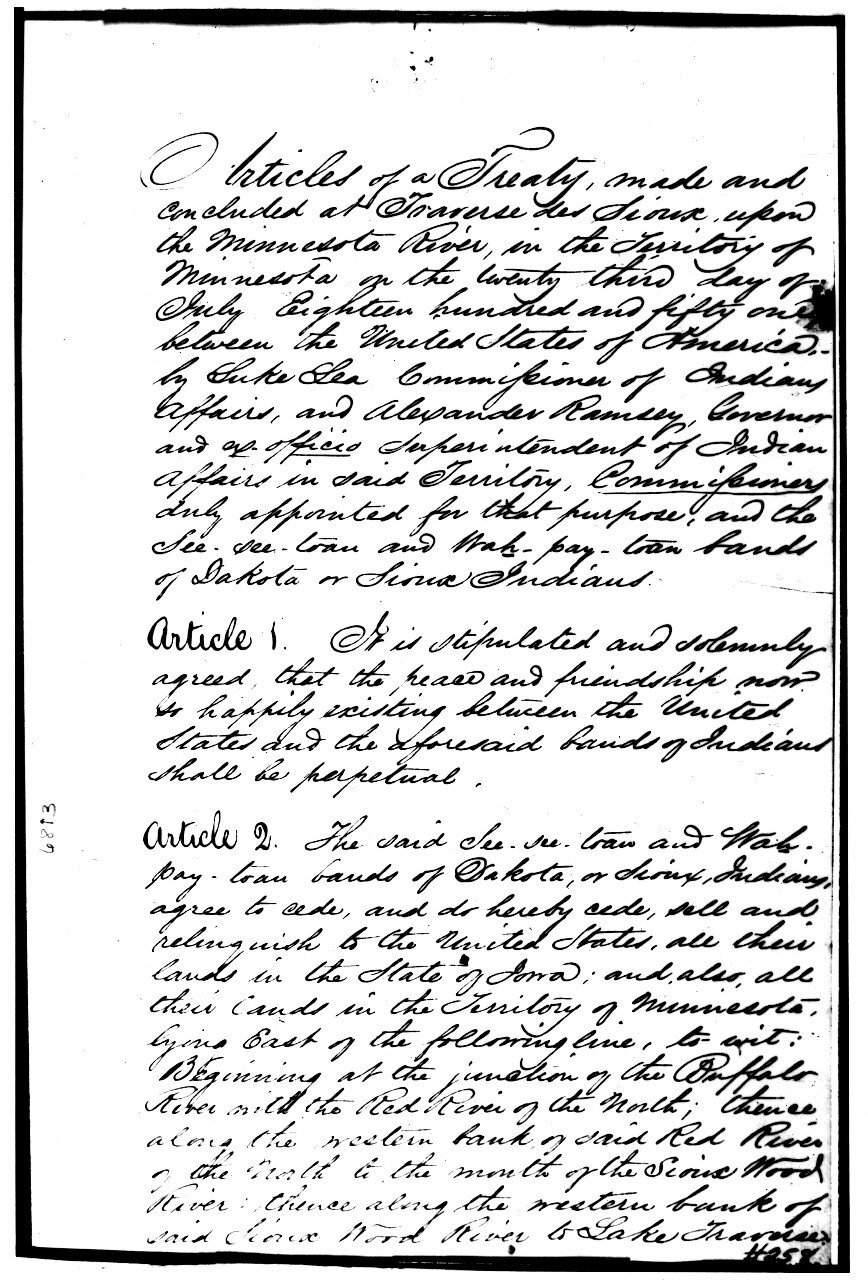 Articles of a Treaty, made and
concluded at Traverse des Sioux, upon
the Minnesota River, in the Territory of
Minnesota on the twenty third day of
July Eighteen hundred and fifty one
between the United States of America,
by Luke Lea Commissioner of Indian
Affairs, and Alexander Ramsey, Governor
and ex-officio Superintendent of Indian
Affairs in said Territory, Commissioners
duly appointed for that purpose, and the
See-see-toan and Wah-pay-toan bands
of Dakota or Sioux Indians.
Article 1. It is stipulated and solemnly
agreed, that the peace and friendship now
so happily existing between the United
States and the aforesaid bands of Indians
shall be perpetual.
Article 2. The said See-see-toan and Wah-
pay-toan bands of Dakota, or Sioux, Indians,
agree to cede, and do hereby cede, sell and
relinquish to the United States, all their
lands in the State of Iowa; and, also, all
their lands in the Territory of Minnesota,
lying East of the following line, to wit:
Beginning at the junction of the Buffalo
River with the Red River of the North; thence
along the western bank of said Red River
of the North to the mouth of the Sioux Wood
River; thence along the western bank of
said Sioux Wood River to Lake Traverse;
#258
6813